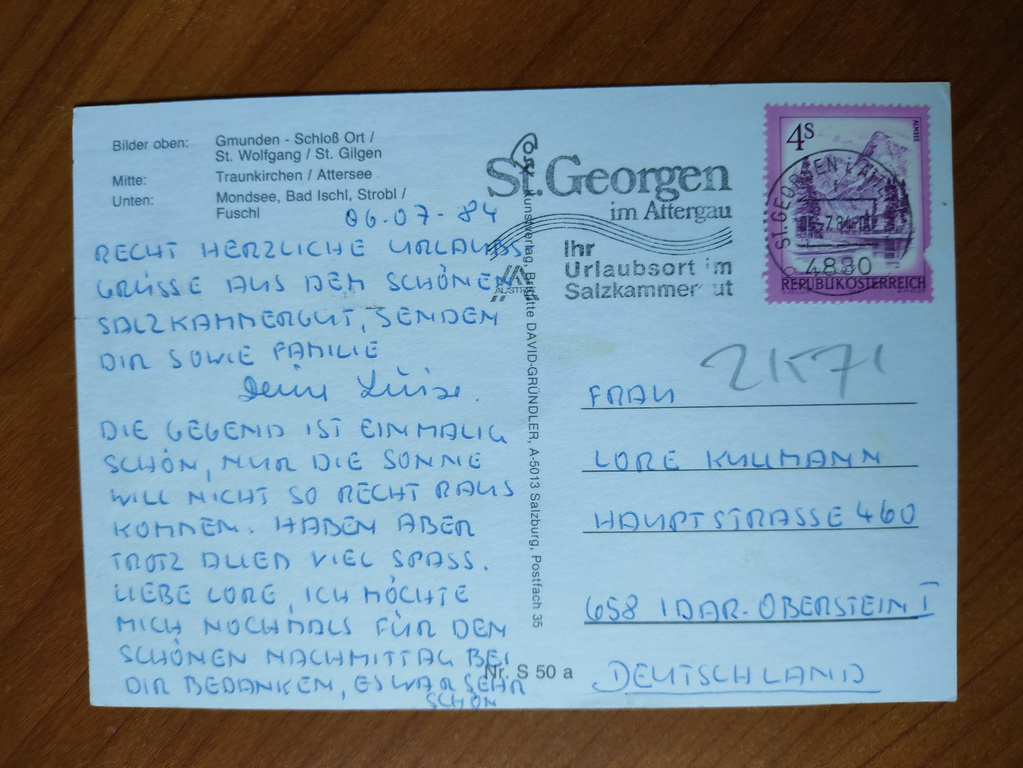 Bilder oben: Gmunden - Schloß Ort /
St. Wolfgang / St. Gilgen
Mitte: Traunkirchen / Attersee
Unten: Mondsee, Bad Ischl, Strobl /
Fuschl
06.07-84
RECHT HERZLICHE URLAUBS
GRÜSSE AUS DEM SCHÖNEN
SALZKAMMERGUT, SENDEN
DIR SOWIE FAMILIE
Deine Luise.
DIE GEGEND IST EINMALIG
SCHÖN, NUR DIE SONNE
WILL NICHT SO RECHT RAUS
KOMMEN. HABEN ABER
TROTZ ALLEN VIEL SPASS.
LIEBE LORE, ICH MÖCHTE
MICH NOCHMALS FÜR DEN
SCHÖNEN NACHMITTAG BEI
DIR BEDANKEN, ES WAR SEHR
SCHÖN
Kunstverlag, Brigitte DAVID-GRÜNDLER, A-5013 Salzburg, Postfach 35
Nr. S 50 a
St. Georgen
im Attergau
Ihr
Urlaubsort im
Salzkammer ut
4S
ALMSEE
ST. GEORGEN i. ATT
7.84
4880
REPUBLIK ÖSTERREICH
21571
FRAU
LORE KULLMANN
HAUPTSTRASSE 460
658 IDAR-OBERSTEIN I
DEUTSCHLAND